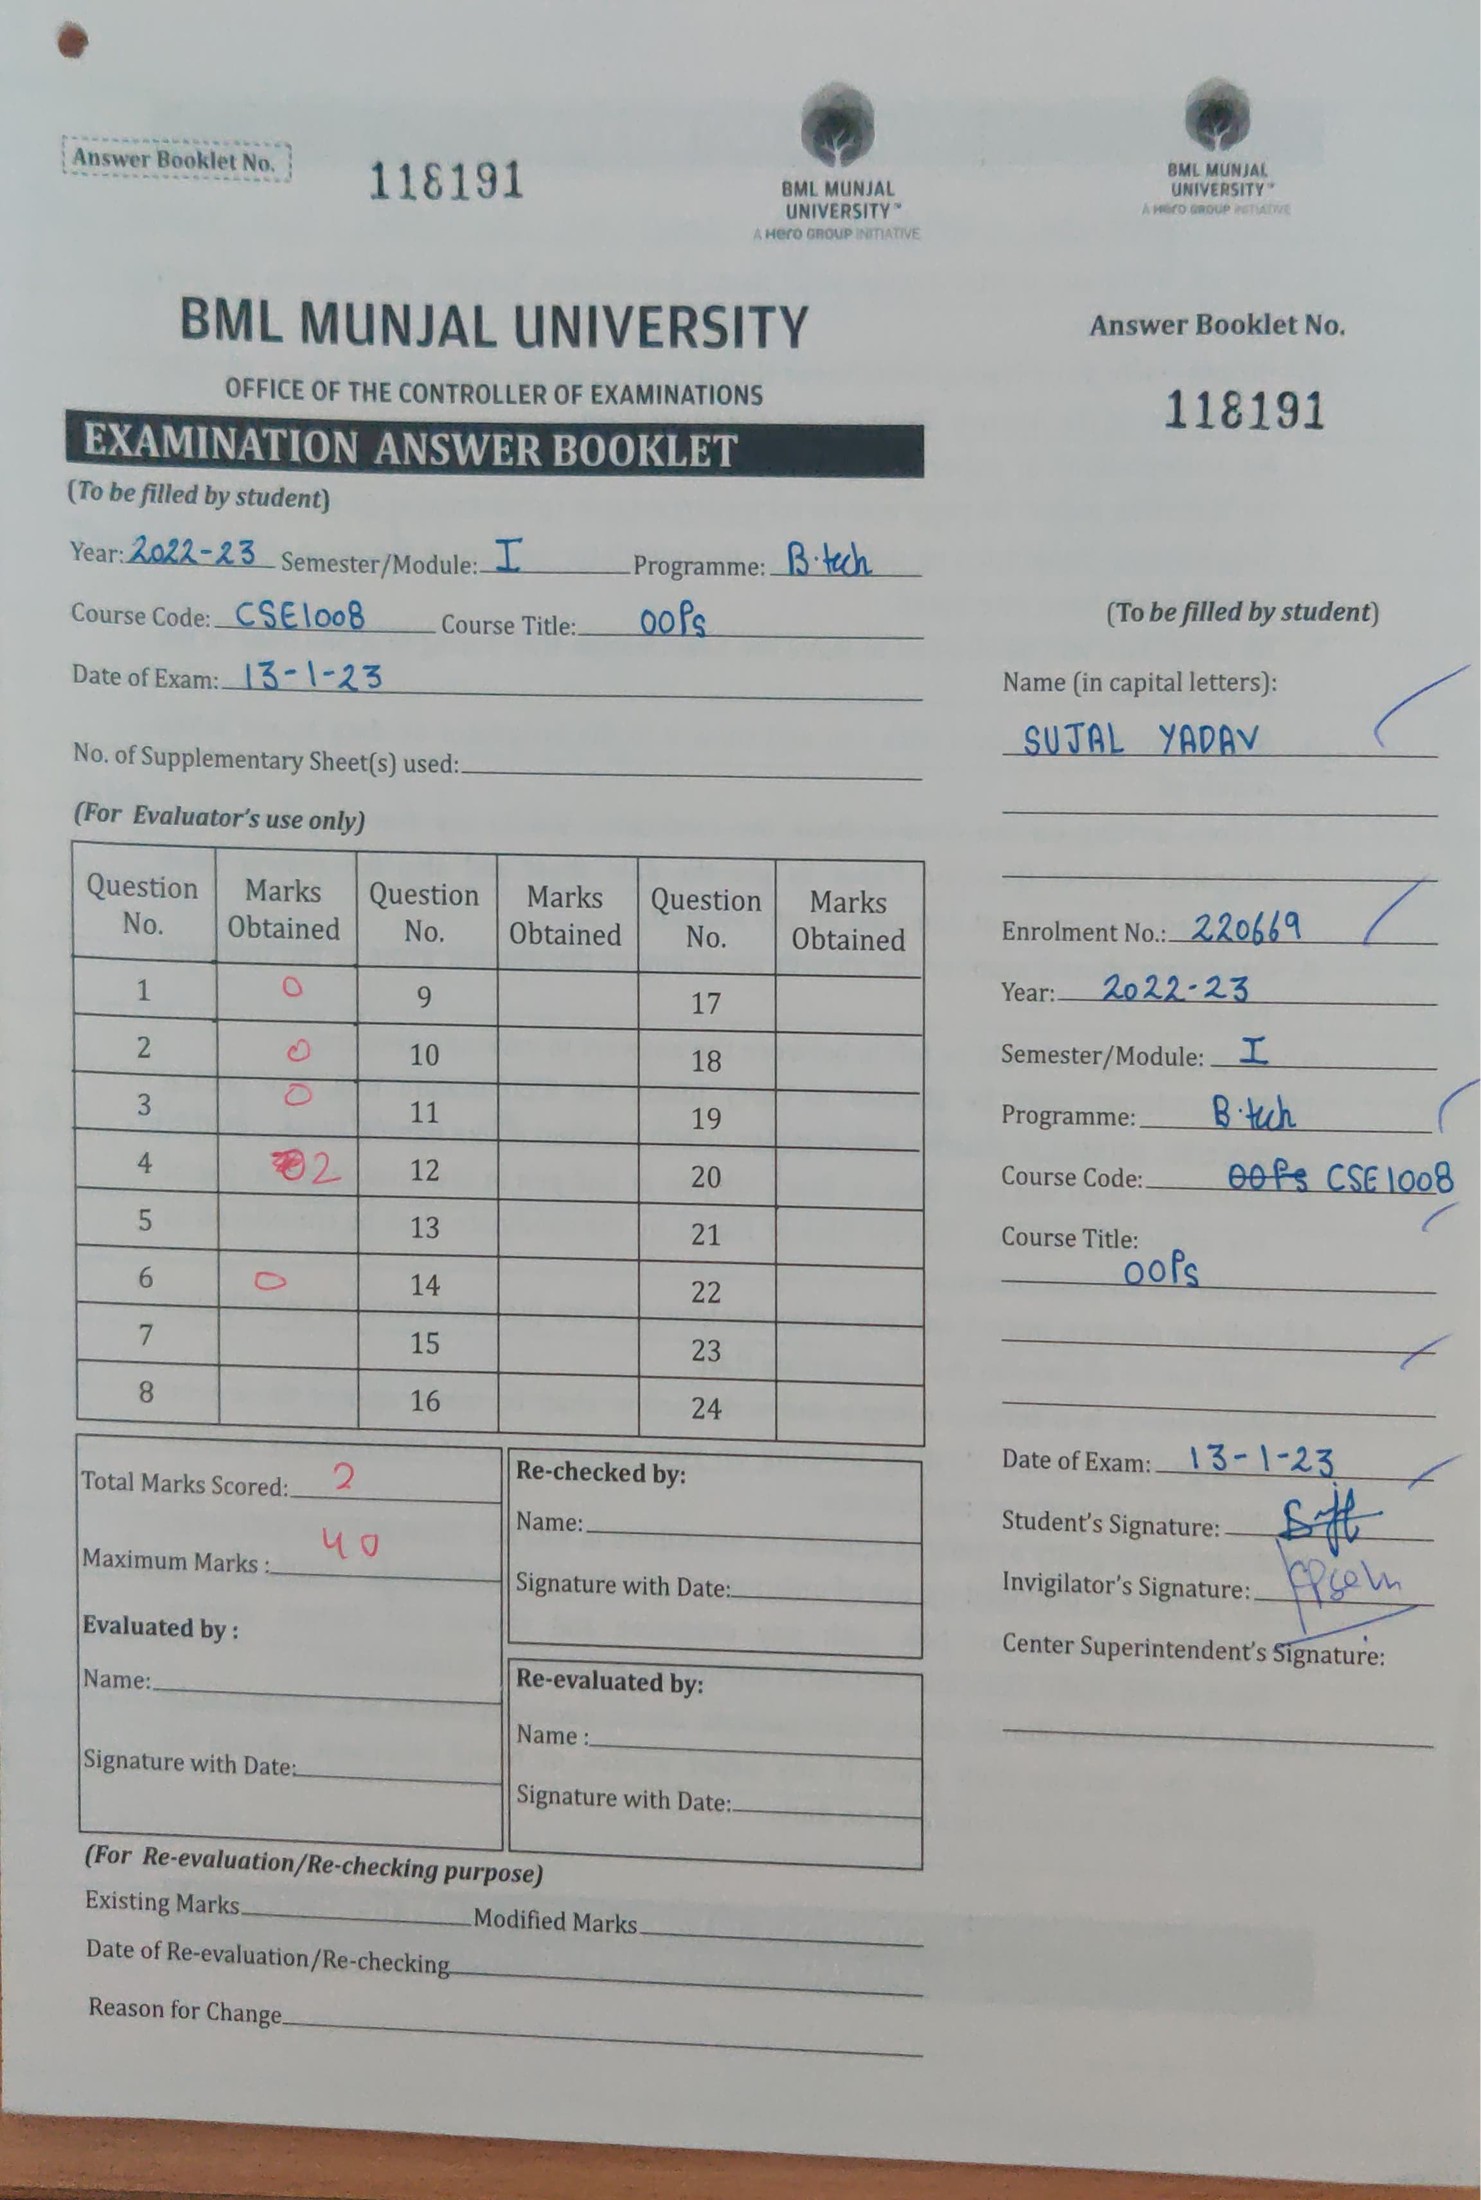 Answer Booklet No. 118191
BML MUNJAL
UNIVERSITY™
A Hero GROUP INITIATIVE
BML MUNJAL UNIVERSITY
OFFICE OF THE CONTROLLER OF EXAMINATIONS
EXAMINATION ANSWER BOOKLET
(To be filled by student)
Year: 2022-23 Semester/Module: I Programme: B.tech
Course Code: CSE1008 Course Title: OOPs
Date of Exam: 13-1-23
No. of Supplementary Sheet(s) used:
(For Evaluator's use only)
Question No. Marks Obtained Question No. Marks Obtained Question No. Marks Obtained
1 0 9 17
2 0 10 18
3 0 11 19
4 2 12 20
5 13 21
6 0 14 22
7 15 23
8 16 24
Total Marks Scored: 2
Maximum Marks : 40
Evaluated by :
Name:
Signature with Date:
Re-checked by:
Name:
Signature with Date:
Re-evaluated by:
Name :
Signature with Date:
(For Re-evaluation/Re-checking purpose)
Existing Marks Modified Marks
Date of Re-evaluation/Re-checking
Reason for Change
BML MUNJAL
UNIVERSITY™
A Hero GROUP INITIATIVE
Answer Booklet No.
118191
(To be filled by student)
Name (in capital letters):
SUJAL YADAV
Enrolment No.: 220669
Year: 2022-23
Semester/Module: I
Programme: B.tech
Course Code: OOPs CSE1008
Course Title:
OOPs
Date of Exam: 13-1-23
Student's Signature:
Invigilator's Signature:
Center Superintendent's Signature: